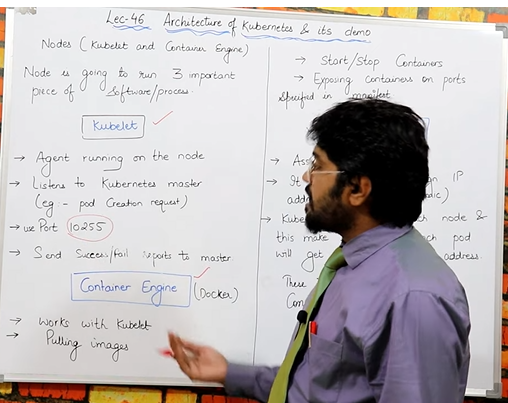 Lec-46 Architecture of Kubernetes & its demo
Nodes (Kubelet and Container Engine)
Node is going to run 3 important
piece of software/process.
Kubelet
→ Agent running on the node
→ Listens to Kubernetes master
(eg - pod Creation request)
→ use Port 10255
→ Send Success/Fail reports to master
Container Engine (Docker)
→ Works with Kubelet
→ Pulling images
→ Start/Stop Containers
→ Exposing containers on ports
Specified in manifest
→ Ass
→ It IP
add
→ Kube node &
this make ch pod
will get address.
These
Con